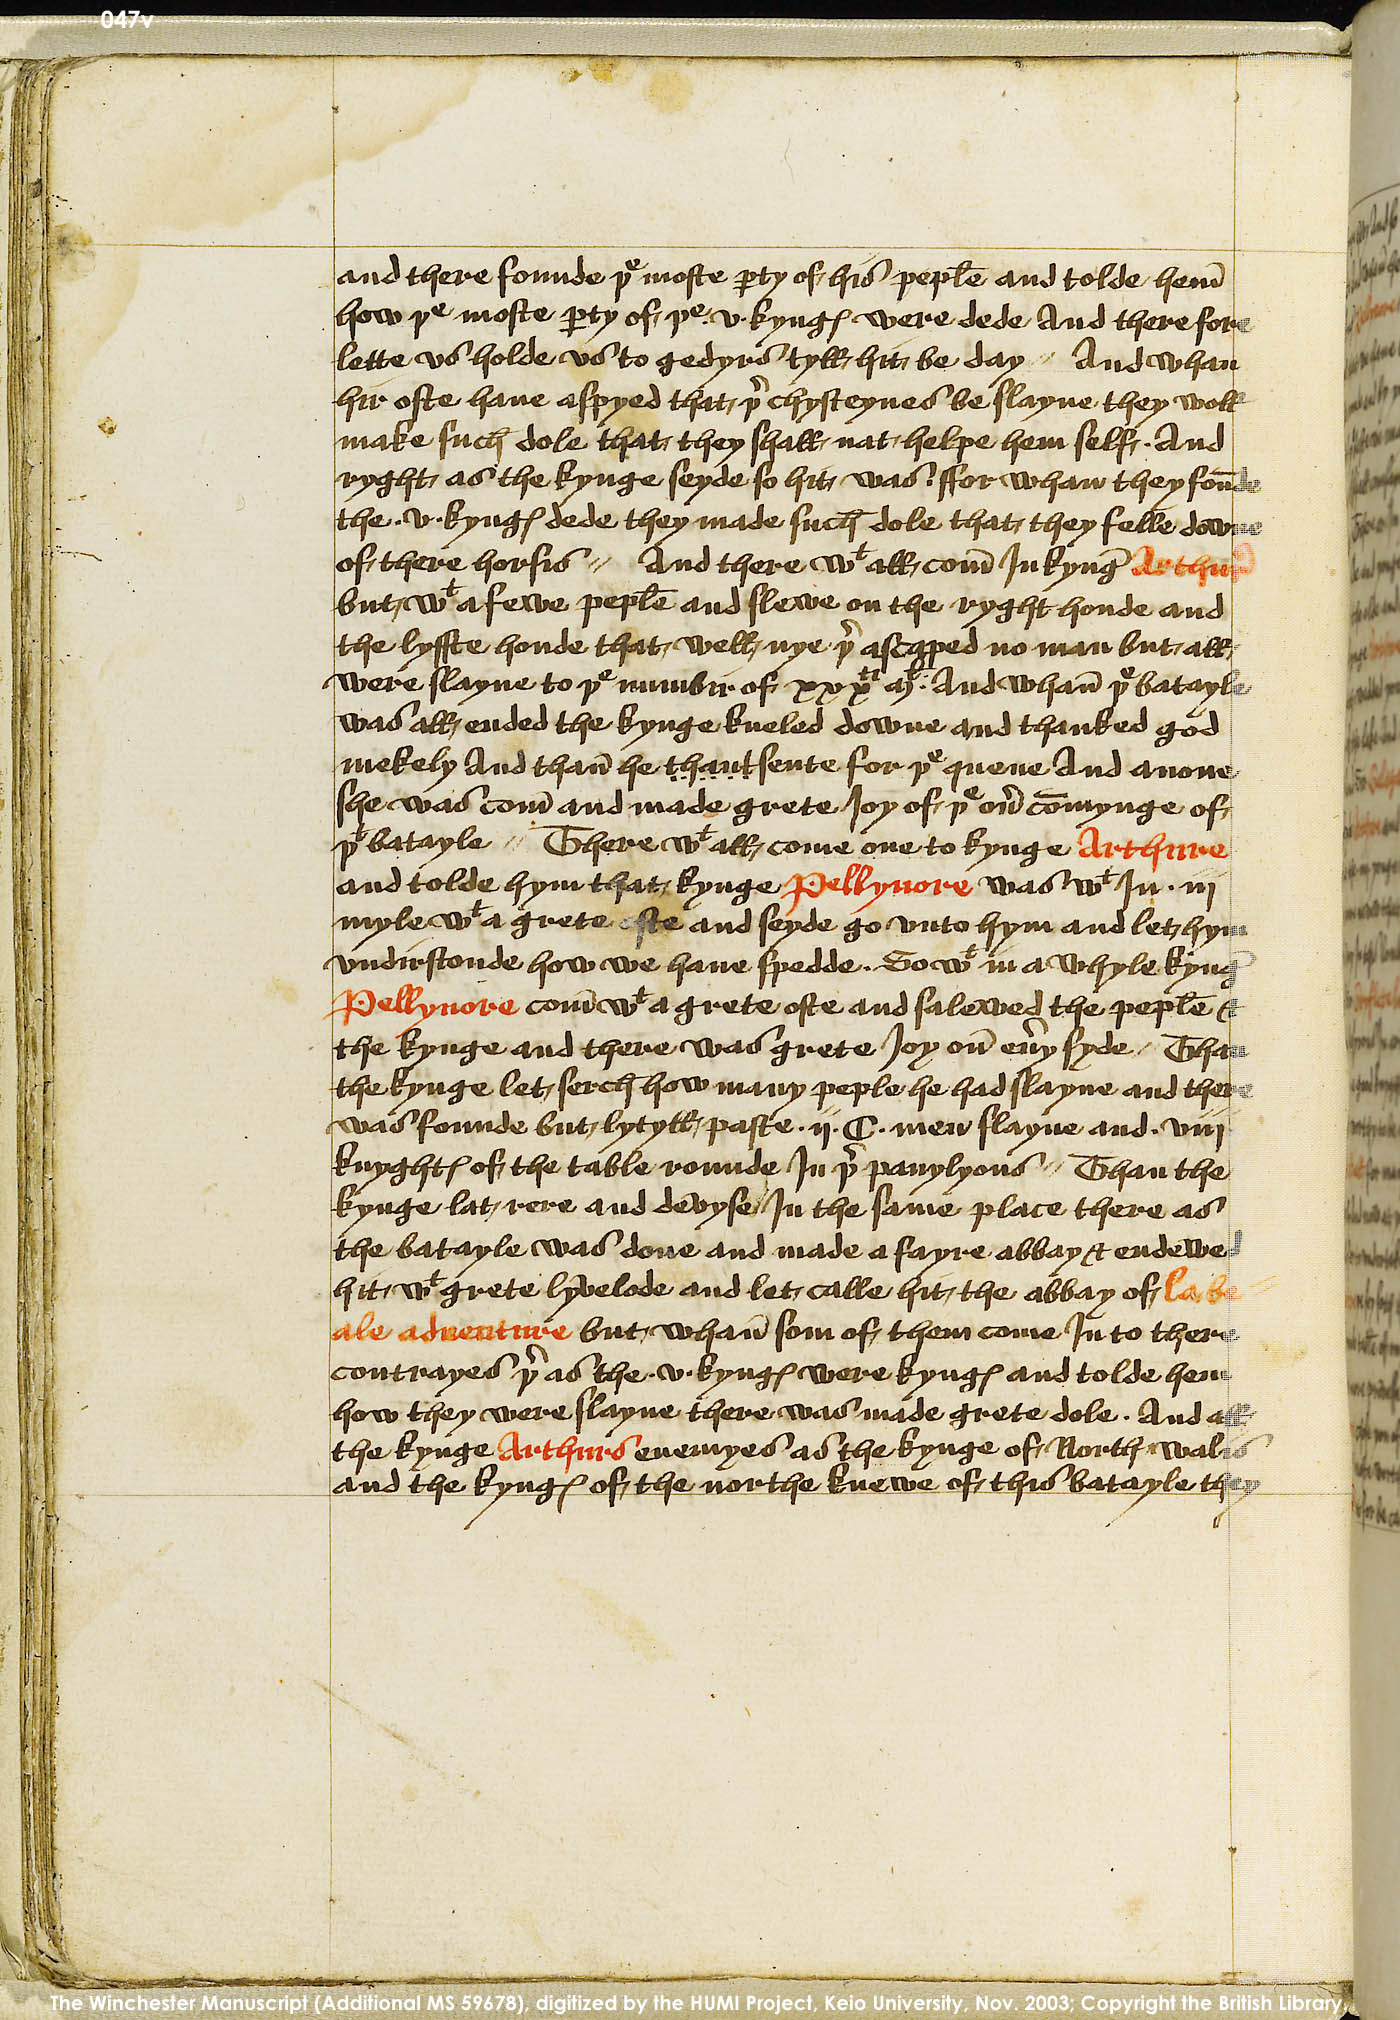 047v
and there founde þe moste ꝑty of his peple and tolde hem̄
how þe moste ꝑty of þe .v. kyngꝭ were dede And therefore
lette vs holde vs to gedyrs tyll hit be day // And whan
hir oste haue aspyed that þr chyfteynes be slayne they woll
make such dole that they shall nat helpe hem self . And
ryght as the kynge seyde so hit was . ffor whan they foūde
the .v. kyngꝭ dede they made such dole that they felle downe
of there horsis // And there wt all com̄ In kyng Arthure
but wt a fewe peple and slewe on the ryght honde and
the lyffte honde that well nye þr ascaped no man but all
were slayne to þe numbir of xxxti Ml . And whan̄ þe batayle
was all ended the kynge kneled downe and thanked god
mekely And than̄ he thant sente for þe quene And anone
she was com̄ and made grete Joy of þe ou̕ com̄ynge of
þt batayle // There wt all come one to kynge Arthure
and tolde hym that kynge Pellynore was wt In . iij
myle wt a grete oste and seyde go vnto hym and let hym
vndirstonde how we haue spedde . So wt in a whyle kyng
Pellynore com̄ wt a grete oste and salewed the peple &
the kynge and there was grete Joy on̄ eu̕y syde // Than
the kynge let serch how many peple he had slayne and there
was founde but lytyll paste . ij . C . men slayne and . viij
knyghtꝭ of the table rounde In þr pauylyons // Than the
kynge lat rere and devyse In the same place there as
the batayle was done and made a fayre abbay & endewed
hit wt grete lyvelode and let calle hit the abbay of la be
ale adventure but whan̄ som of them come In to there
contrayes þr as the .v. kyngꝭ were kyngꝭ and tolde hem
how they were slayne there was made grete dole . And all
the kynge Arthurs enemyes as the kynge of North walis
and the kyngꝭ of the northe knewe of this batayle they
The Winchester Manuscript (Additional MS 59678), digitized by the HUMI Project, Keio University, Nov. 2003; Copyright the British Library